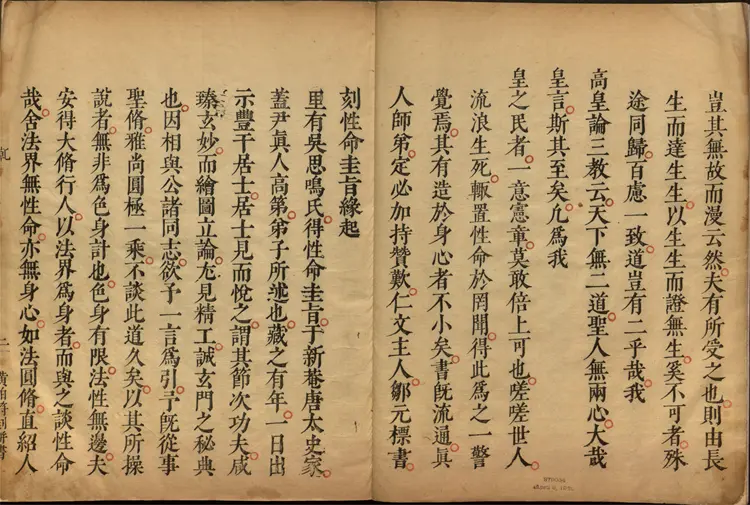 豈其無故而漫云然夫有所受之也則由長
生而達生生以生生而證無生奚不可者殊
途同歸百慮一致道豈有二乎哉我
高皇論三教云天下無二道聖人無兩心大哉
皇言斯其至矣凢為我
皇之民者一意憲章莫敢倍上可也嗟嗟世人
流浪生死輙置性命於罔聞得此為之一警
覺焉其有造於身心者不小矣書旣流通眞
人師弟定必加持贊歎仁文主人鄒元標書
刻性命圭旨緣起
里有吳思鳴氏得性命圭旨于新菴唐太史家
蓋尹眞人高第弟子所述也藏之有年一日出
示豐干居士居士見而悅之謂其節次功夫咸
臻玄妙而繪圖立論尤見精工誠玄門之秘典
也因相與公諸同志欲予一言爲引予旣從事
聖脩雅尚圓極一乘不談此道久矣以其所操
說者無非爲色身計也色身有限法性無邊夫
安得大脩行人以法界爲身者而與之談性命
哉舍法界無性命亦無身心如法圓脩直紹人
二